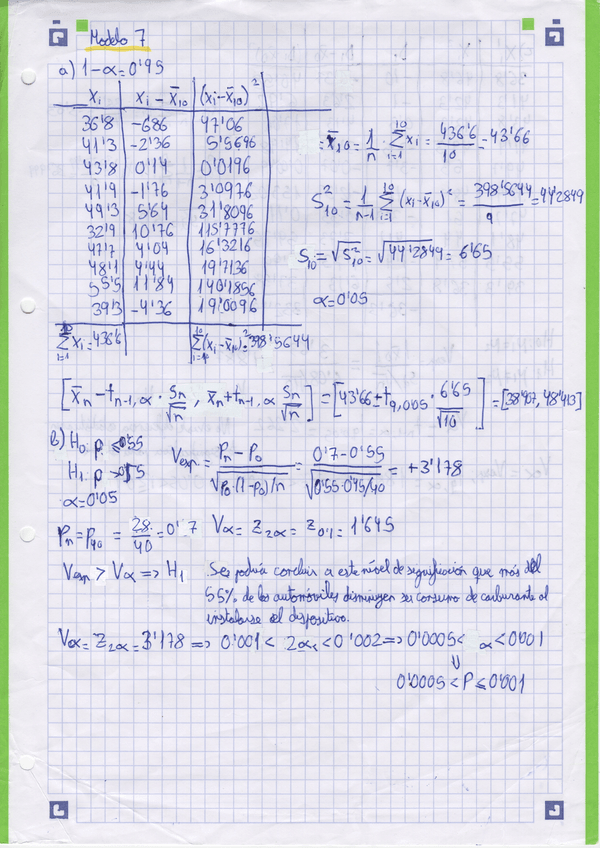 Modelo 7
a) 1-α=0'95
Xi | Xi - X̄10 | (Xi-X̄10)²
36'8 | -6'86 | 47'06
41'3 | -2'36 | 5'5696
43'8 | 0'14 | 0'0196
41'9 | -1'76 | 3'0976
49'3 | 5'64 | 31'8096
32'9 | 10'76 | 115'7776
47'7 | 4'04 | 16'3216
48'1 | 4'44 | 19'7136
55'5 | 11'84 | 140'1856
39'3 | -4'36 | 19'0096
∑i=1^10 Xi = 436'6 | | ∑i=1^10 (Xi-X̄10)² = 398'5644
= X̄10 = 1/n · ∑i=1^10 Xi = 436'6/10 = 43'66
S10² = 1/(n-1) ∑i=1^10 (Xi-X̄10)² = 398'5644/9 = 44'2849
S10 = √S10² = √44'2849 = 6'65
α=0'05
[X̄n - tn-1,α · Sn/√n , X̄n + tn-1,α Sn/√n] = [43'66 ± t9,0'05 · 6'65/√10] = [38'907, 48'413]
b) H0: p ≤ 0'55
H1: p > 0'55
α=0'05
Vexp = (Pn - P0)/√(P0·(1-P0)/n) = (0'7-0'55)/√(0'55·0'45/40) = +3'178
Pn = P40 = 28/40 = 0'7
Vα = Z2α = Z0'1 = 1'645
Vexp > Vα => H1
Ses podría concluir a este nivel de significación que más del
55% de los automóviles disminuyen ses consumo de carburante al
instalarse el dispositivo.
Vα = Z2α = 3'178 => 0'001 < 2α < 0'002 => 0'0005 < α < 0'001
⇓
0'0005 < P ≤ 0'001